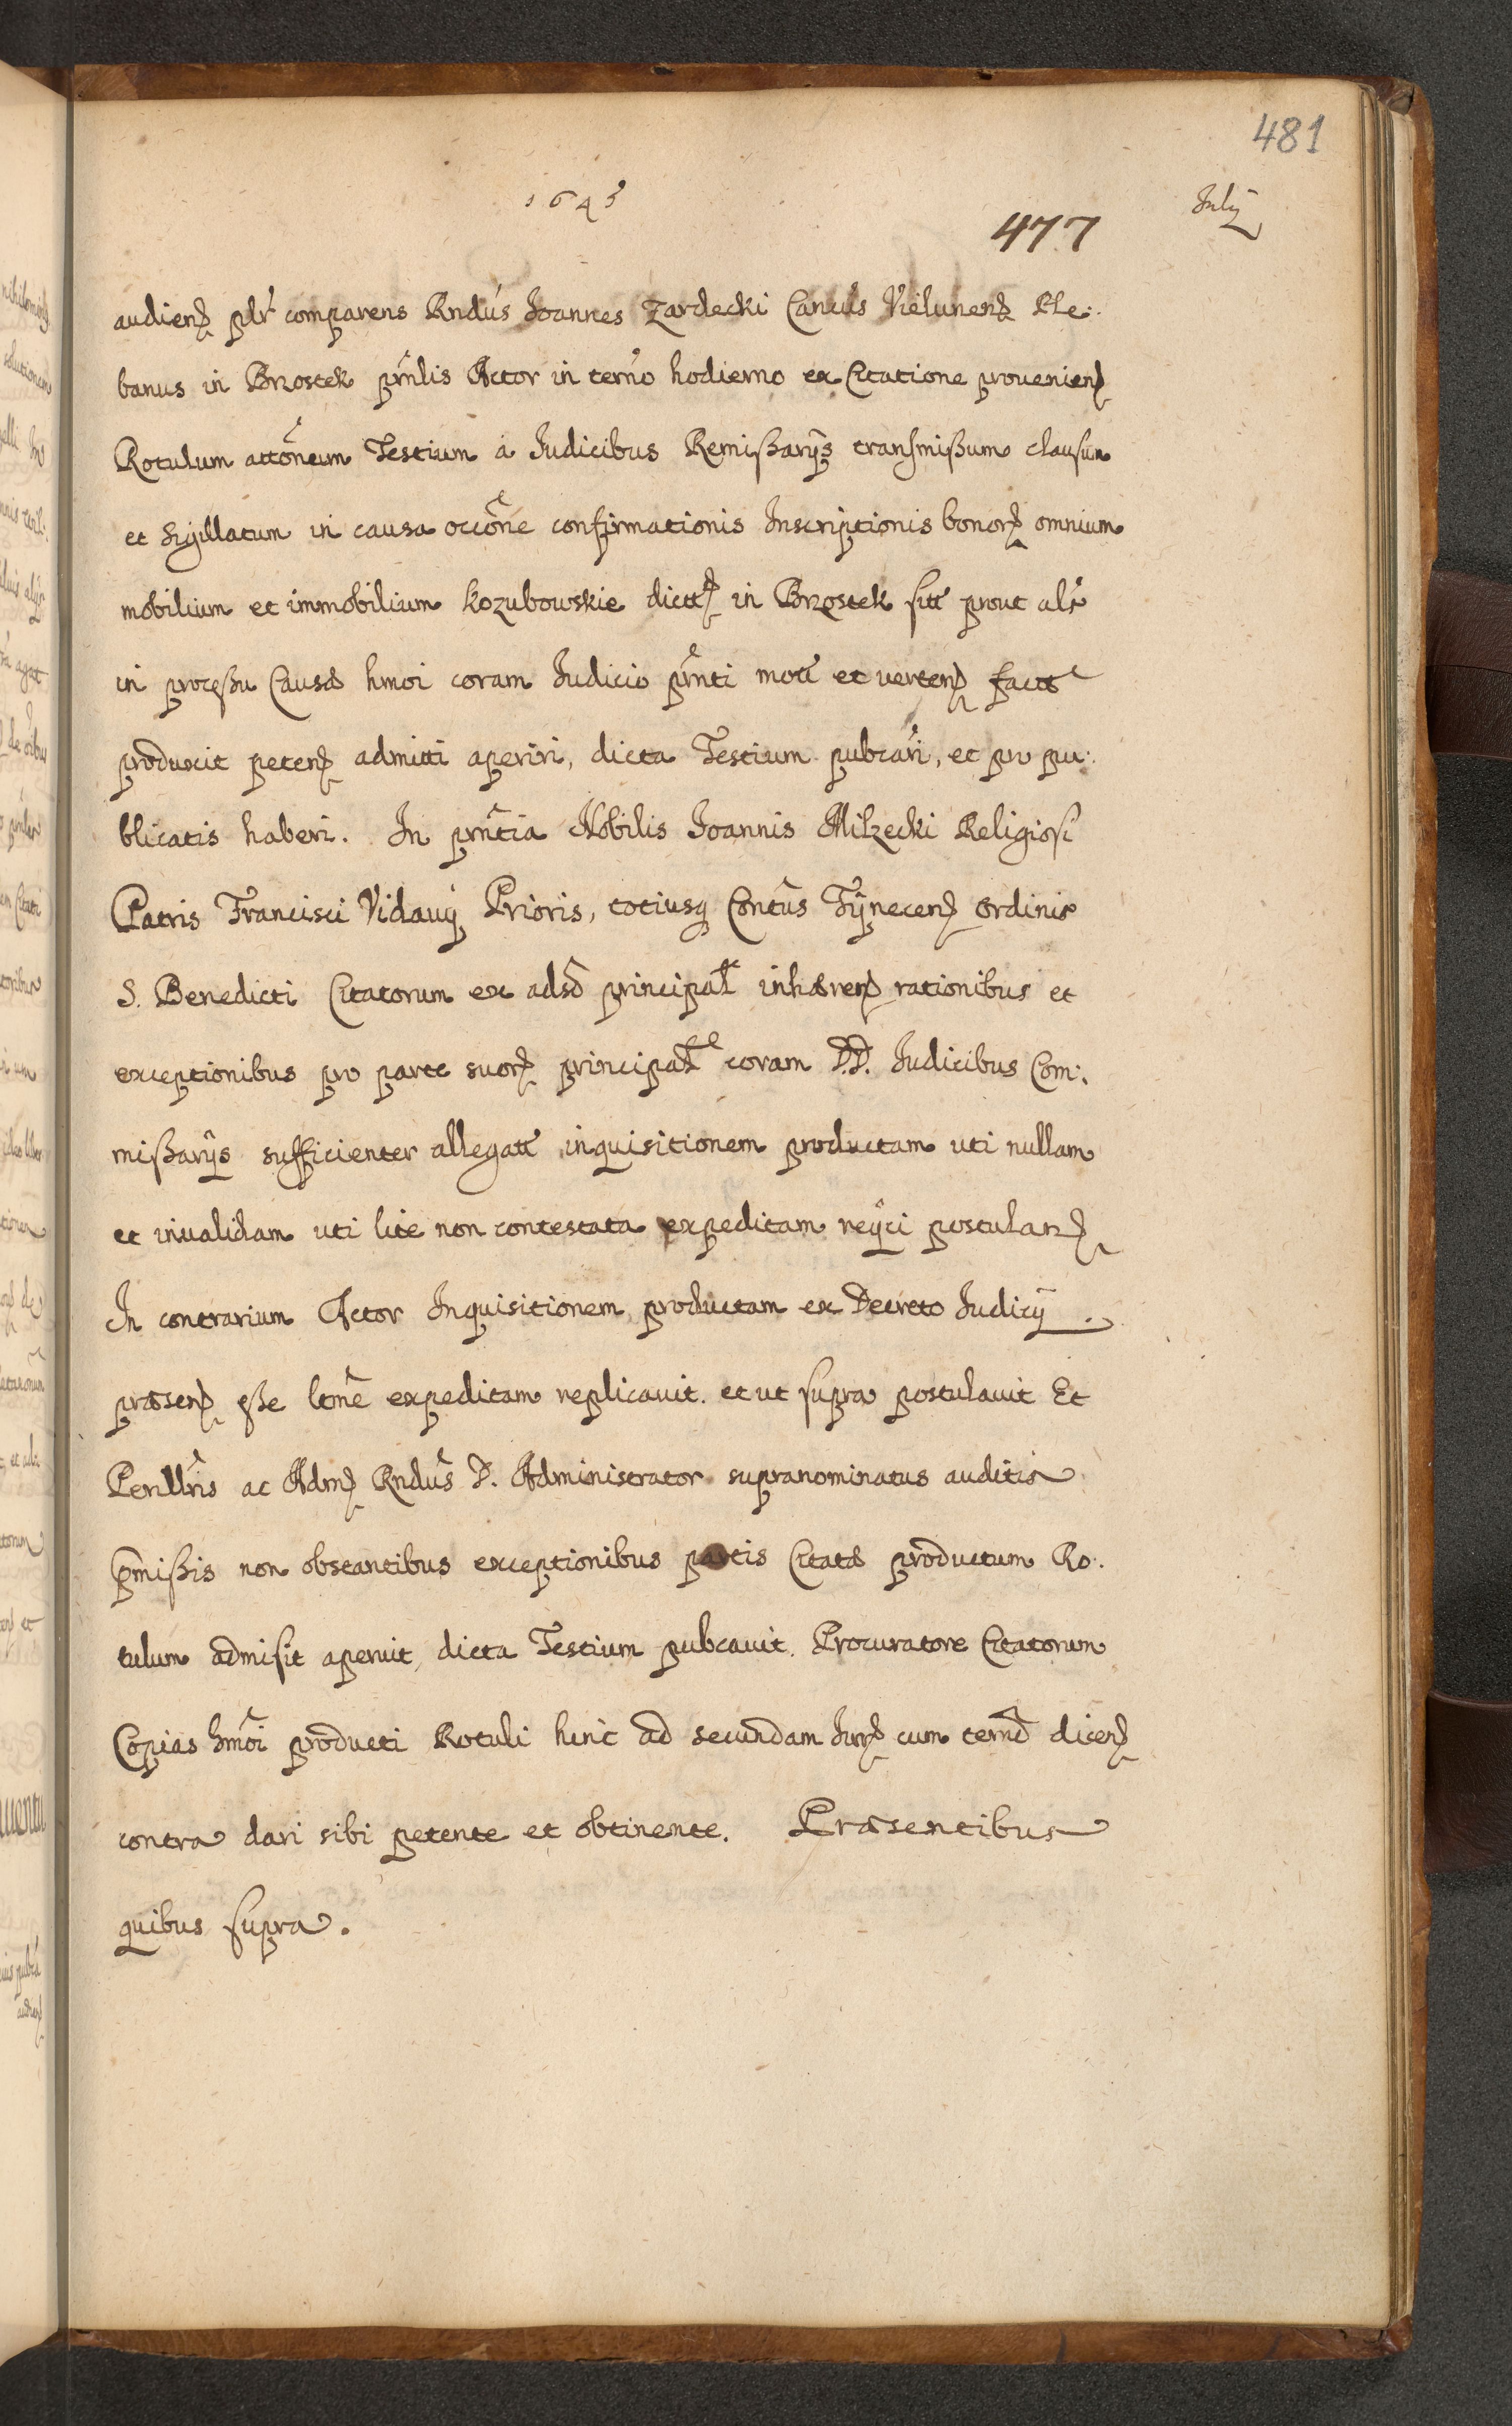 481
1643
July
477
audien plr comparens Rndus Joannes Zardecki Cancus Vielunen Ple:
banus in Brzostek prnlis Actor in termo hodierno ex Citatione provenien
Rotulum attonum Testium a Judicibus Remissarys transmissum clausum
et sigillatum in causa occone confirmationis Inscriptionis bonor omnium
mobilium et immobilium Kozubowskie dictt in Brzostek sitt prout als
in processu Causæ hmoi coram Judicio prnti mott et verten factt
produxit peten admitti aperiri, dicta Testium pubcari, et pro pu:
blicatis haberi. In prntia Nobilis Joannis Milzecki Religiosi
Patris Francisci Vidavy Prioris, totiusq Contus Tynecen Ordinis
S. Benedicti Citatorum ex adso principal inhæren rationibus et
exceptionibus pro parte suor principal coram D.D. Judicibus Com:
missarys sufficienter allegatt inquisitionem productam uti nullam
et invalidam uti lite non contestata expeditam reyci postulan
In contrarium Actor Inquisitionem productam ex Decreto Judicy
præsen esse ltme expeditam replicavit. et ut supra postulavit Et
Perillris ac Adm Rndus D. Administrator supranominatus auditis
pmissis non obstantibus exceptionibus partis Citatæ productum Ro:
tulum admisit aperuit, dicta Testium pubcavit. Procuratore Citatorum
Copias hmoi producti Rotuli hinc ad secundam Jur cum termo dicen
contra dari sibi petente et obtinente. Præsentibus
quibus supra.